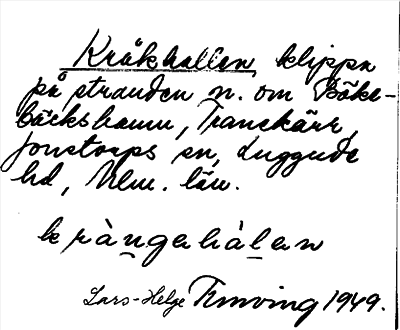 Kråkhallen, klippa
på stranden n. om Böke-
bäckshamn, Tranekärr,
Jonstorps sn, Luggude
hd, Mlm. län.
kràngahàlan
Lars-Helge 1949.